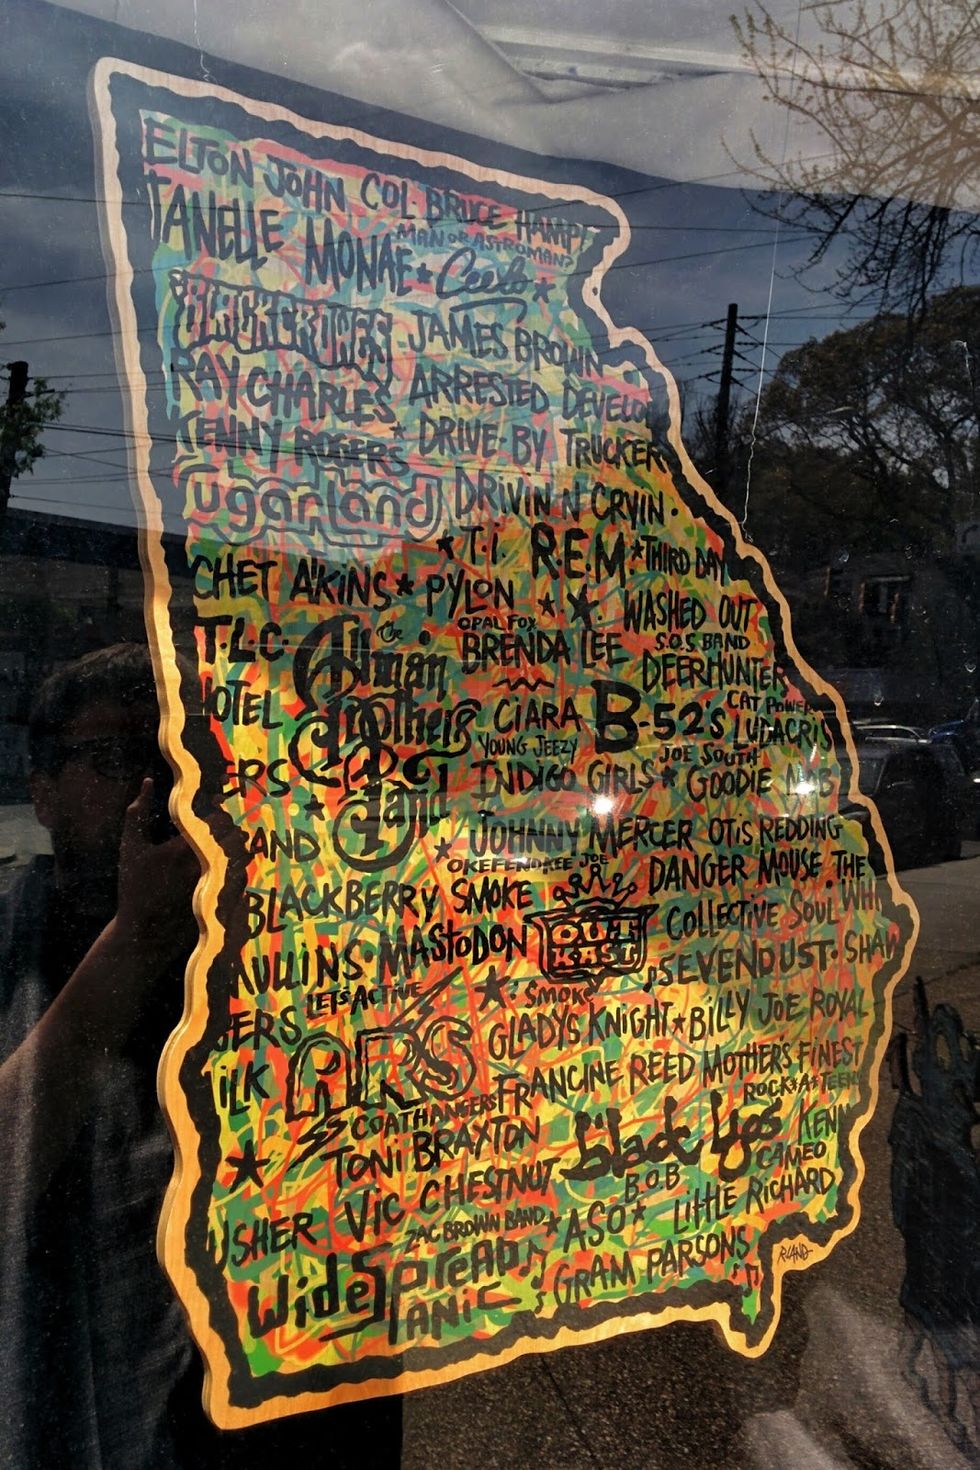 ELTON JOHN COL. BRUCE HAMPT
JANELLE MONAE ★ MAN OR ASTROMAN? CeeLo ★
JAMES BROWN
RAY CHARLES ★ ARRESTED DEVELO
KENNY ROGERS DRIVE-BY TRUCKER
SugarLand DRIVIN N CRYIN
★ T.I. R.E.M. ★ THIRD DAY
CHET AKINS ★ PYLON ★ ★ WASHED OUT
OPAL FOX S.O.S. BAND
T.L.C. The Allman BRENDA LEE DEERHUNTER
CAT POWER
OTEL Brothers CIARA B-52'S LUDACRIS
YOUNG JEEZY JOE SOUTH
ERS ★ Band INDIGO GIRLS ★ GOODIE MOB
AND ★ JOHNNY MERCER OTIS REDDING
OKEFENOKEE JOE
BLACKBERRY SMOKE DANGER MOUSE. THE
OUTKAST COLLECTIVE SOUL WHI
ULLINS. MASTODON SEVENDUST. SHAW
LET'S ACTIVE ★ SMOKE
ERS ARS GLADYS KNIGHT ★ BILLY JOE ROYAL
ILK FRANCINE REED MOTHER'S FINEST
COATHANGERS ROCK*A*TEEN
★ TONI BRAXTON Black Lips KENN
CAMEO
USHER VIC CHESTNUT B.O.B
ZAC BROWN BAND ★ ASO ★ LITTLE RICHARD
WideSpreaD PANiC GRAM PARSONS
R.LAND